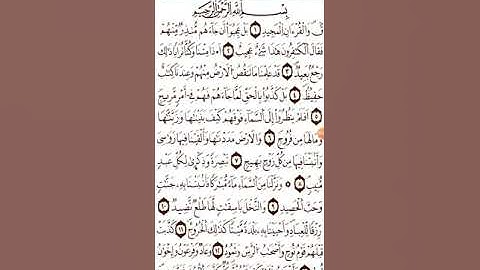 بِسْمِ اللَّهِ الرَّحْمَٰنِ الرَّحِيمِ
قٓ وَالْقُرْءَانِ الْمَجِيدِ ١ بَلْ عَجِبُوٓا أَن جَآءَهُم مُّنذِرٌ مِّنْهُمْ
فَقَالَ الْكَٰفِرُونَ هَٰذَا شَىْءٌ عَجِيبٌ ٢ أَءِذَا مِتْنَا وَكُنَّا تُرَابًا ذَٰلِكَ
رَجْعٌ بَعِيدٌ ٣ قَدْ عَلِمْنَا مَا تَنقُصُ الْأَرْضُ مِنْهُمْ وَعِندَنَا كِتَٰبٌ
حَفِيظٌ ٤ بَلْ كَذَّبُوا بِالْحَقِّ لَمَّا جَآءَهُمْ فَهُمْ فِىٓ أَمْرٍ مَّرِيجٍ
٥ أَفَلَمْ يَنظُرُوٓا إِلَى السَّمَآءِ فَوْقَهُمْ كَيْفَ بَنَيْنَٰهَا وَزَيَّنَّٰهَا
وَمَا لَهَا مِن فُرُوجٍ ٦ وَالْأَرْضَ مَدَدْنَٰهَا وَأَلْقَيْنَا فِيهَا رَوَٰسِىَ
وَأَنۢبَتْنَا فِيهَا مِن كُلِّ زَوْجٍۭ بَهِيجٍ ٧ تَبْصِرَةً وَذِكْرَىٰ لِكُلِّ عَبْدٍ
مُّنِيبٍ ٨ وَنَزَّلْنَا مِنَ السَّمَآءِ مَآءً مُّبَٰرَكًا فَأَنۢبَتْنَا بِهِۦ جَنَّٰتٍ
وَحَبَّ الْحَصِيدِ ٩ وَالنَّخْلَ بَاسِقَٰتٍ لَّهَا طَلْعٌ نَّضِيدٌ ١٠
رِّزْقًا لِّلْعِبَادِ وَأَحْيَيْنَا بِهِۦ بَلْدَةً مَّيْتًا كَذَٰلِكَ الْخُرُوجُ ١١ كَذَّبَتْ
قَبْلَهُمْ قَوْمُ نُوحٍ وَأَصْحَٰبُ الرَّسِّ وَثَمُودُ ١٢ وَعَادٌ وَفِرْعَوْنُ وَإِخْوَٰنُ